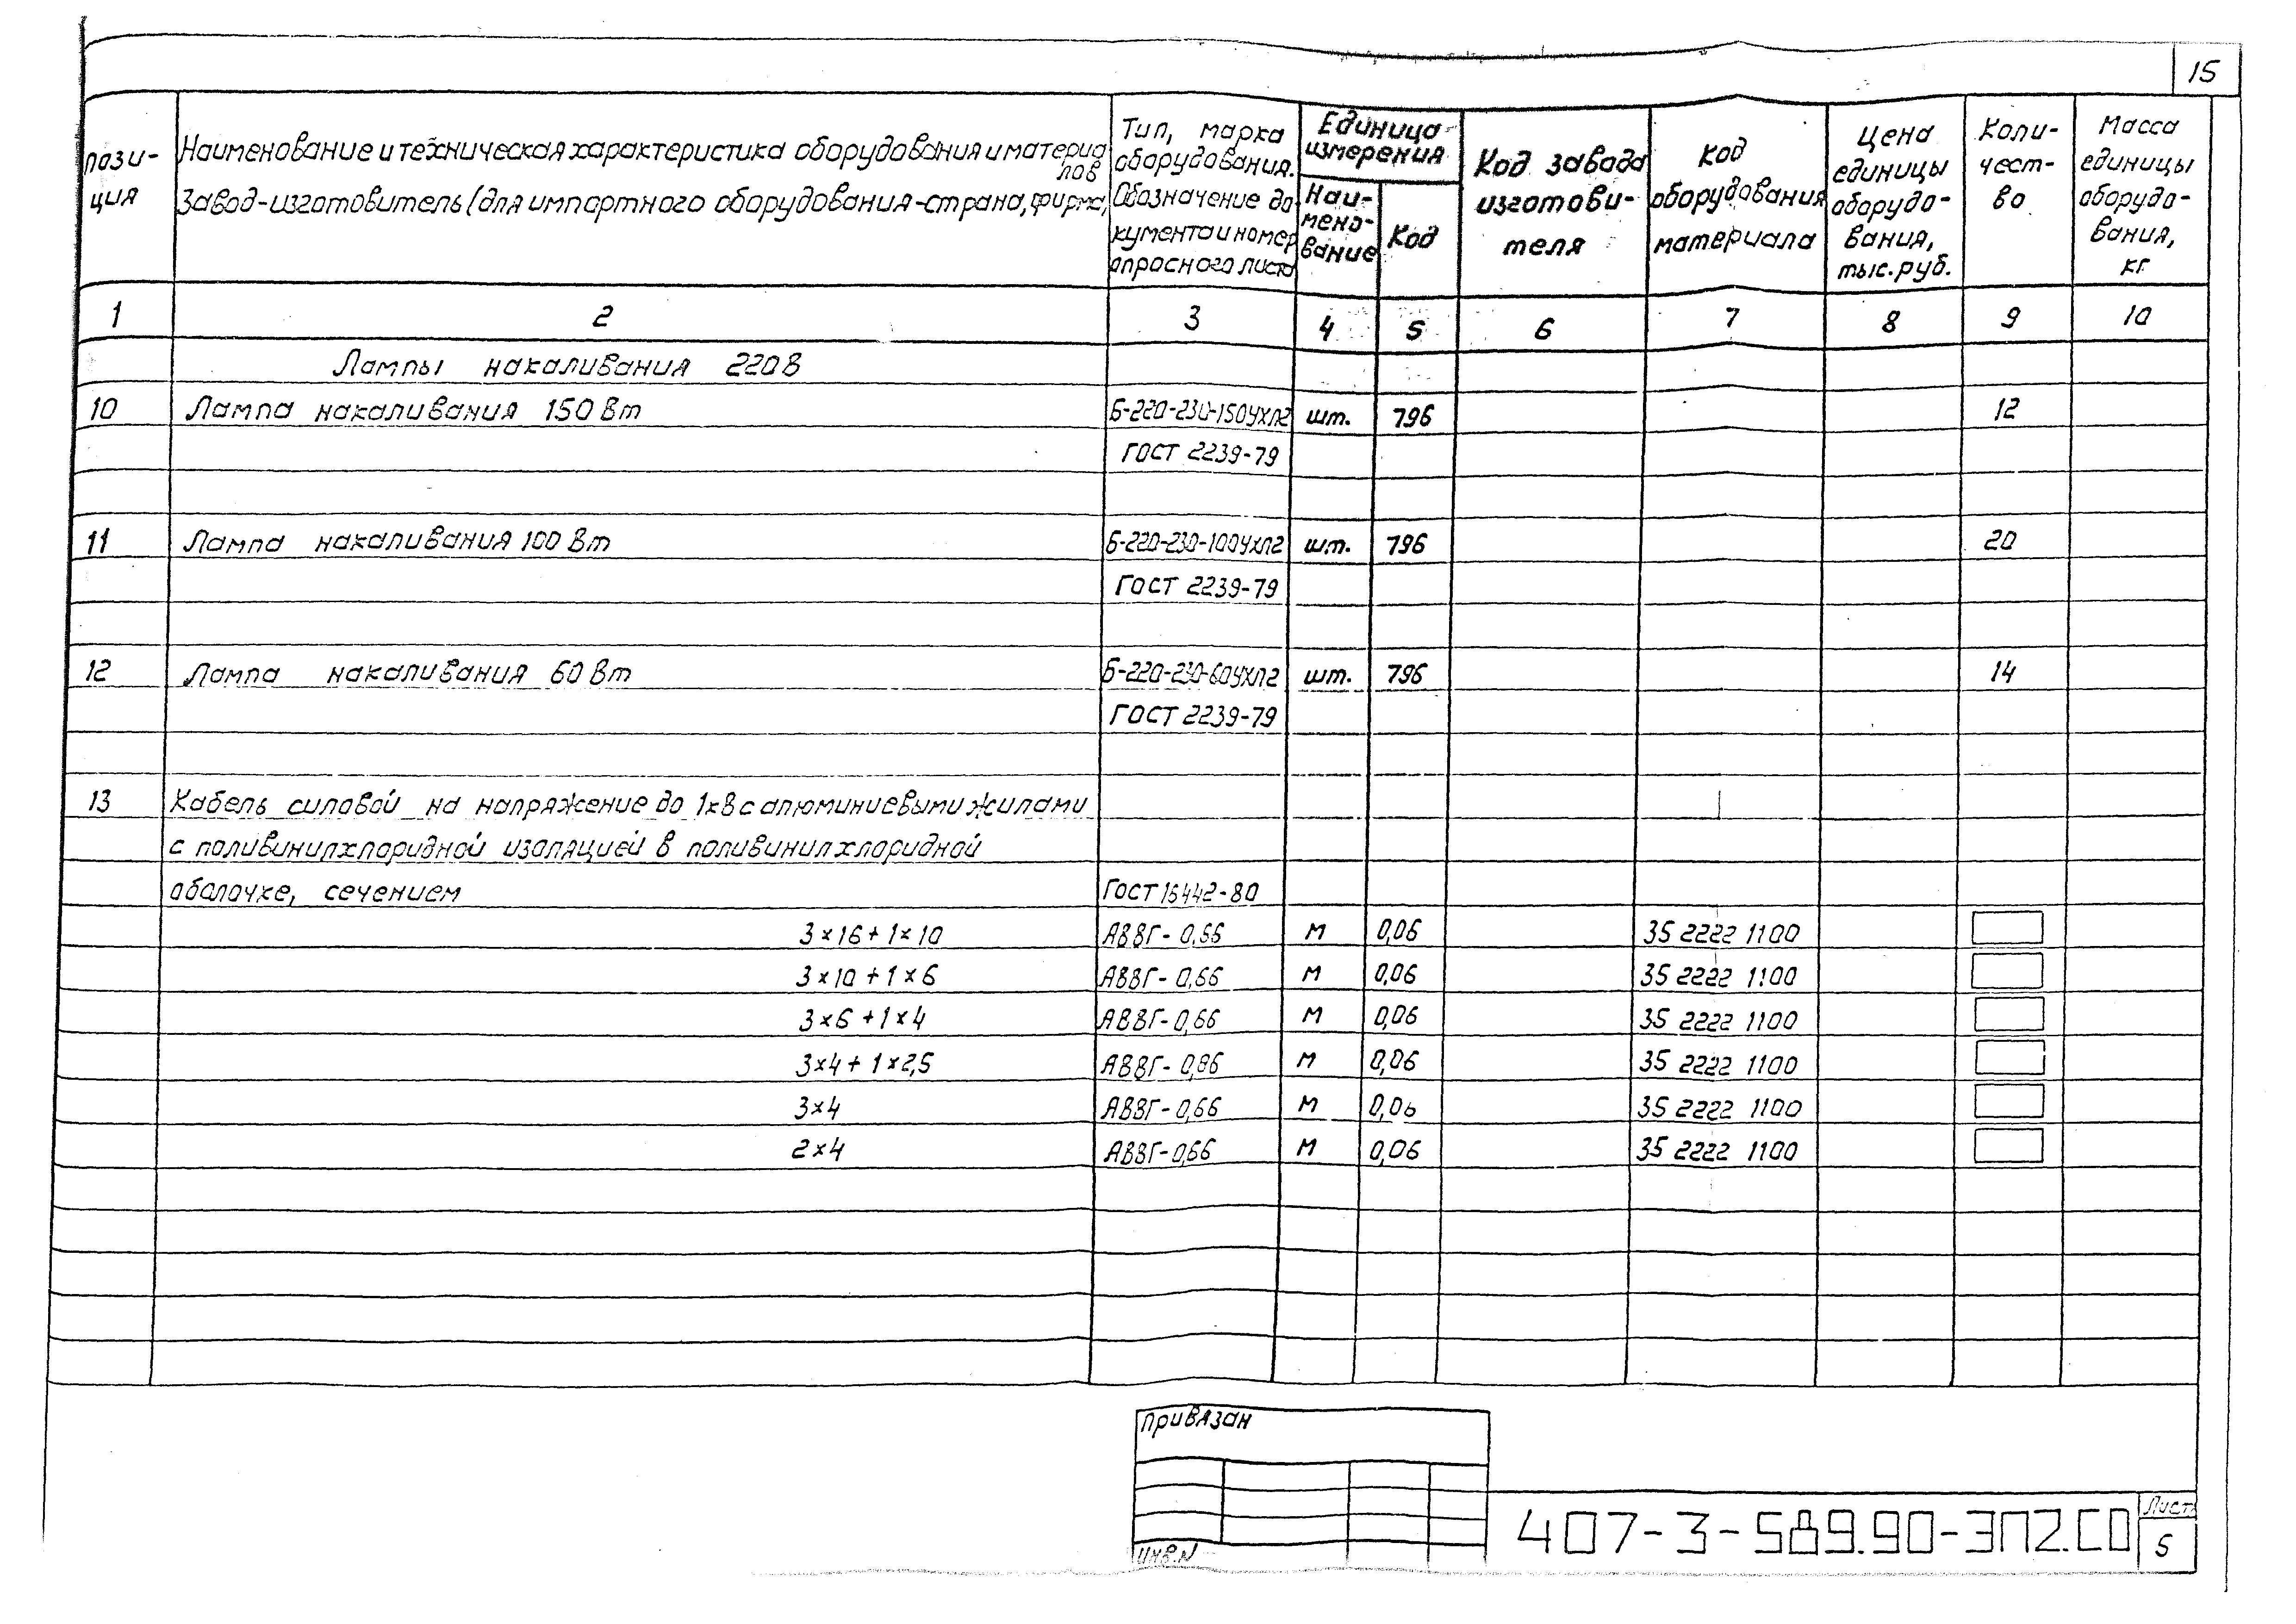 15
пози-
ция
Наименование и техническая характеристика оборудования и материа
лов
Завод-изготовитель (для импортного оборудования-страна, фирма)
Тип, марка
оборудования.
Обозначение до
кумента и номер
опросного листа
Единица
измерения
Наи-
мено-
вание
Код
Код завода
изготови-
теля
Код
оборудования
материала
Цена
единицы
оборудо-
вания,
тыс.руб.
Коли-
чест-
во
Масса
единицы
оборудо-
вания,
кг
1 2 3 4 5 6 7 8 9 10
Лампы накаливания 220В
10 Лампа накаливания 150 Вт Б-220-230-150УХЛ2 шт. 796 12
ГОСТ 2239-79
11 Лампа накаливания 100 Вт Б-220-230-100УХЛ2 шт. 796 20
ГОСТ 2239-79
12 Лампа накаливания 60 Вт Б-220-230-60УХЛ2 шт. 796 14
ГОСТ 2239-79
13 Кабель силовой на напряжение до 1кВ с алюминиевыми жилами
с поливинилхлоридной изоляцией в поливинилхлоридной
оболочке, сечением ГОСТ 16442-80
3×16+1×10 АВВГ-0,66 м 0,06 35 2222 1100
3×10+1×6 АВВГ-0,66 м 0,06 35 2222 1100
3×6+1×4 АВВГ-0,66 м 0,06 35 2222 1100
3×4+1×2,5 АВВГ-0,66 м 0,06 35 2222 1100
3×4 АВВГ-0,66 м 0,06 35 2222 1100
2×4 АВВГ-0,66 м 0,06 35 2222 1100
Привязан
Инв.N
407-3-589.90-ЭП2.СО
Лист
5